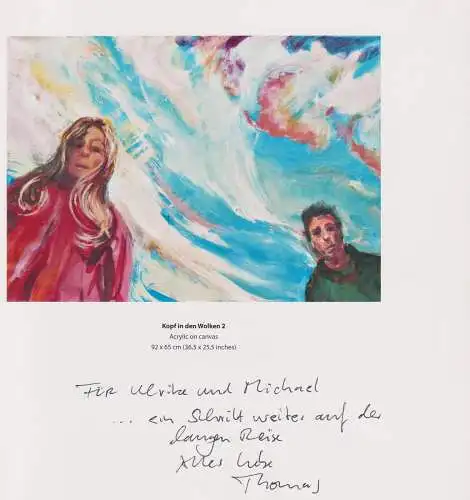 Kopf in den Wolken 2
Acrylic on canvas
92 x 65 cm (36,5 x 25,5 inches)
Für Ulrike und Michael
... ein Schritt weiter auf der
langen Reise
Alles Liebe
Thomas